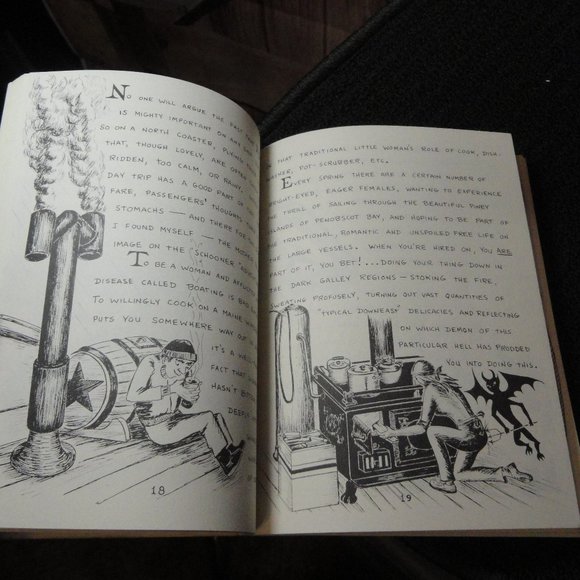 NO ONE WILL ARGUE THE FACT
IS MIGHTY IMPORTANT ON ANY
SO ON A NORTH COASTER, PLYING
THAT, THOUGH LOVELY, ARE OFTEN
RIDDEN, TOO CALM, OR RAINY,
DAY TRIP HAS A GOOD PART OF
FARE, PASSENGERS' THOUGHTS
STOMACHS — AND THERE FOR
I FOUND MYSELF — THE
IMAGE ON THE "SCHOONER
TO BE A WOMAN AND
DISEASE CALLED BOATING IS BAD
TO WILLINGLY COOK ON A MAINE
PUTS YOU SOMEWHERE WAY OUT
IT'S A
FACT THAT
HASN'T
18
THAT TRADITIONAL LITTLE WOMAN'S ROLE OF COOK, DISH-
WASHER, POT-SCRUBBER, ETC.
EVERY SPRING THERE ARE A CERTAIN NUMBER OF
BRIGHT-EYED, EAGER FEMALES, WANTING TO EXPERIENCE
THE THRILL OF SAILING THROUGH THE BEAUTIFUL PINEY
ISLANDS OF PENOBSCOT BAY, AND HOPING TO BE PART OF
THE TRADITIONAL, ROMANTIC AND UNSPOILED FREE LIFE ON
THE LARGE VESSELS. WHEN YOU'RE HIRED ON, YOU ARE
PART OF IT, YOU BET!...DOING YOUR THING DOWN IN
THE DARK GALLEY REGIONS — STOKING THE FIRE,
SWEATING PROFUSELY, TURNING OUT VAST QUANTITIES OF
"TYPICAL DOWNEAST" DELICACIES AND REFLECTING
ON WHICH DEMON OF THIS
PARTICULAR HELL HAS PRODDED
YOU INTO DOING THIS.
19